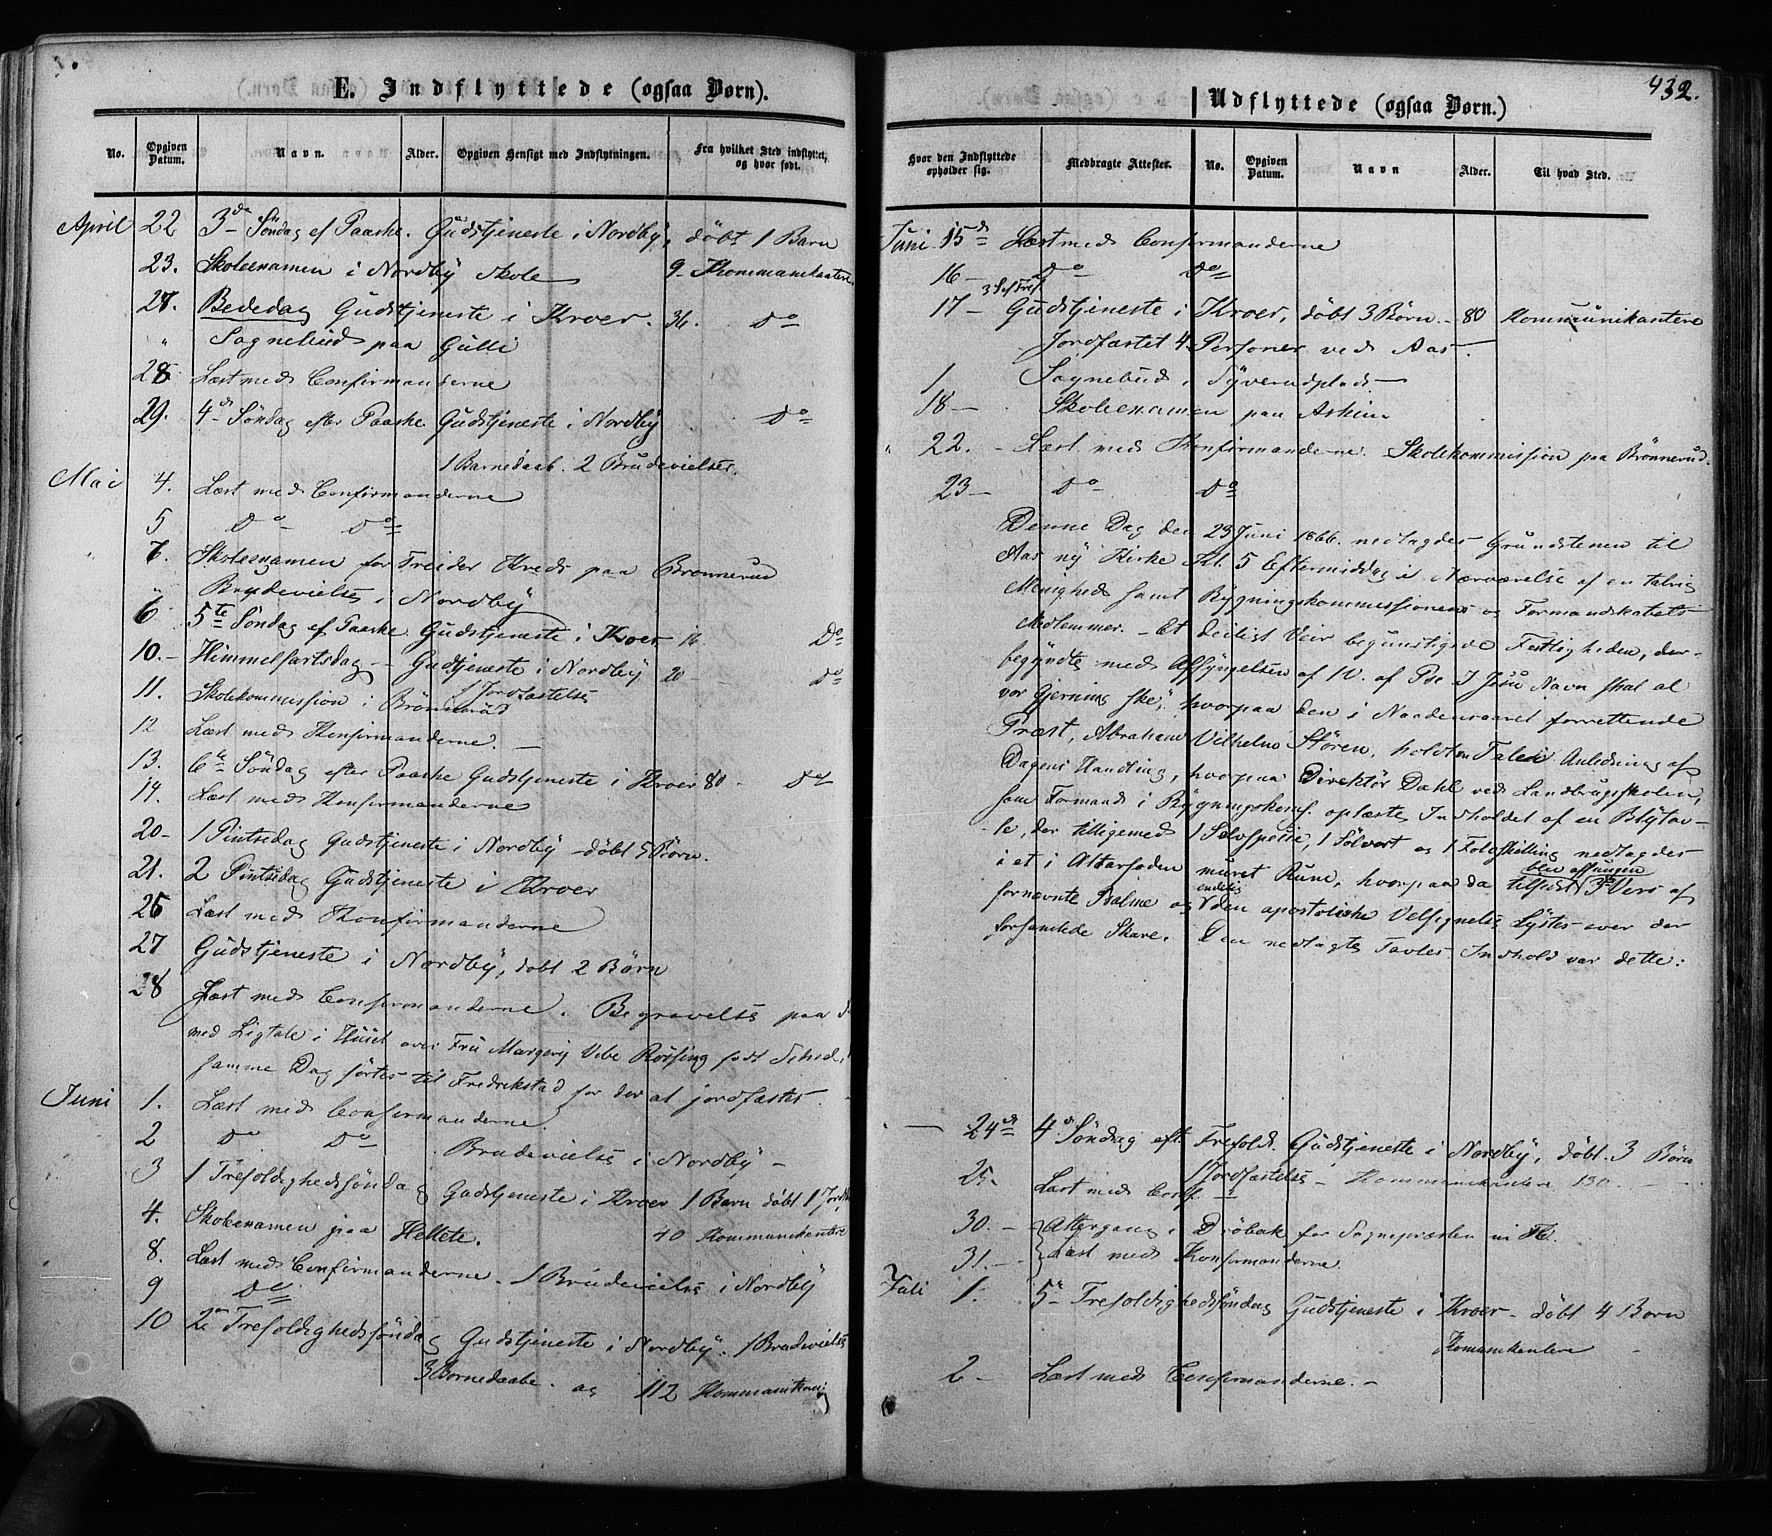 E. Indflyttede (ogsaa Børn).
No.
Opgiven Datum.
Navn.
Alder.
Opgiven Hensigt med Indflytningen.
Fra hvilket Sted indflyttet, og hvor født.
April 22 3de Søndag ef Paaske. Gudstjeneste i Nordby, døbt 1 Barn
23. Skoleexamen i Nordby Skole 9 Kommunikantere
27. Bededag Gudstjeneste i Kroer. 36. Do
" Sognebud paa Gulli
28 Læst med Confirmanderne
29. 4de Søndag efter Paaske Gudstjeneste i Nordby Do
1 Barnedaab. 2 Brudevielser.
Mai 4. Læst med Confirmanderne
5 Do Do
7. Skoleexamen for Kreds paa Brønnerud
" Brudevielse i Nordby
6 5te Søndag ef Paaske Gudstjeneste i Kroer 16. Do
10. Himmelfartsdag - Gudtjeneste i Nordby 20 Do
1 Jordfæstelse
11. Skolekommission i Brønnerud
12 Læst med Konfirmanderne.
13. 6te Søndag efter Paaske Gudstjeneste i Kroer 80 Do
14. Læst med Konfirmanderne
20- 1 Pintsedag Gudstjeneste i Nordby - døbt 5 Børn.
21. 2 Pintsedag Gudstjeneste i Kroer
26 Læst med Konfirmanderne
27 Gudstjeneste i Nordby, døbt 2 Børn
28 Læst med Confirmanderne. Begravelse paa
med Ligtale i Huset over Fru Vibe født
samme Dag førtes til Fredrikstad for der at jordfæstes.
Juni 1. Læst med Confirmanderne
2 Do Do Brudevielse i Nordby -
3 1 Trefoldighedssøndag Gudstjeneste i Kroer 1 Barn døbt 1
4. Skoleexamen paa 40 Kommunikantere
8. Læst med Confirmanderne. 1 Brudevielse i Nordby
9 Do
10 2en Trefoldighedssøndag Gudstjeneste i Nordby. 1 Brudevielse
3 Barnedaabe. og 112
432.
Udflyttede (ogsaa Børn.)
Hvor den Indflyttede opholder sig.
Medbragte Attester.
No.
Opgiven Datum.
Navn
Alder.
Til hvad Sted.
Juni 15de Læst med Confirmanderne
16- Do Do
3 S ef Tref.
17- Gudstjeneste i Kroer, døbt 3 Børn. - 80 Kommunikantere
Jordfæstet 4 Personer ved Aas
1 Sognebud i
18- Skoleexamen paa Askim
" 22. - Læst med Konfirmanderne. Skolekommission paa Brønnerud.
23- Do Do
Denne Dag den 23 Juni 1866 nedlagdes Grundstenen til
Aas ny Kirke Kl. 5 Eftermiddag i Nærværelse af en talrig
Menighed samt Bygningskommissionens og Formandskabets
Medlemmer. - Et deiligt Veir begunstigede Festligheden, der
begyndte med Afsyngelsen af No. af Ps. "I Jesu Navn skal al
vor Gjerning ske", hvorpaa den i Naadensaaret forrettende
Præst, Abraham Vilhelm Støren, holdt en Tale i Anledning af
Dagens Handling, hvorpaa Direktør Dahl ved Landbrugsskolen,
som Formand i Bygningskomf. oplæste Indholdet af en Blytav-
le, der tilligemed 1 Sølvspecie, 1 Sølvort og 1 Tolvskilling nedlagdes
i et i Alterfoden muret Rum, hvorpaa da tilsidst blev afsungen 3de Vers af
fornævnte Psalme og endelig den apostoliske Velsignelse lystes over den
forsamlede Skare. Den nedlagte Tavles Indhold var dette:
24de 4de Søndag eft. Trefold. Gudstjeneste i Nordby, døbt 3 Børn
1 Jordfæstelse - Kommunikantere 130
25. Læst med Conf.
30. - i Drøbak for Sognepræsten
31. - Læst med Konfirmanderne.
Juli 1. 5te Trefoldighedssøndag Gudstjeneste i Kroer - døbt 4 Børn
Komunikantere
2- Læst med Confirmanderne. -